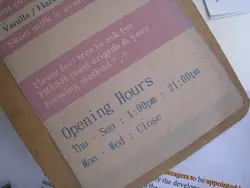 Vanilla / Haze
Skim milk is availa
Please feel free to ask for
FRESH roast origins & your
brewing method ^.^
Opening Hours
Thu - Sun : 1:00pm - 21:00pm
Mon - Wed : Close
nagers to be appointed
by the develop